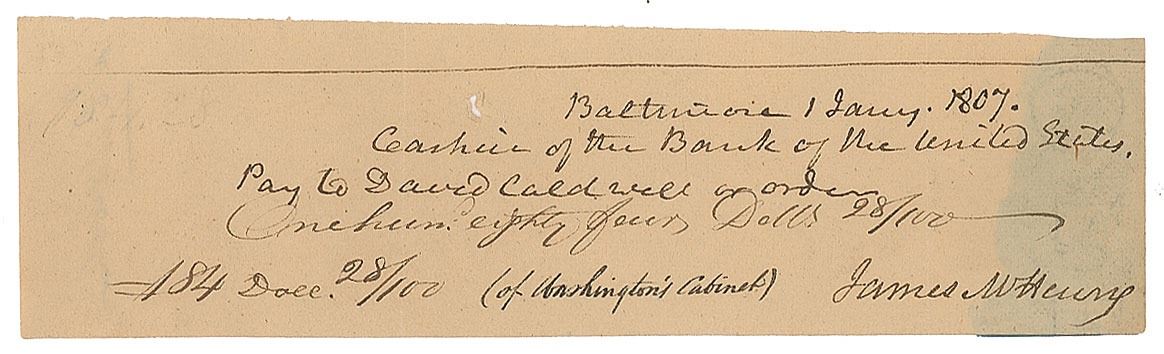 Baltimore 1 Jany. 1807.
Cashier of the Bank of the United States.
Pay to David Caldwell or order
One hun. eighty four Dolls 28/100
184 Doll. 28/100 (of Washington's Cabinet) James McHenry